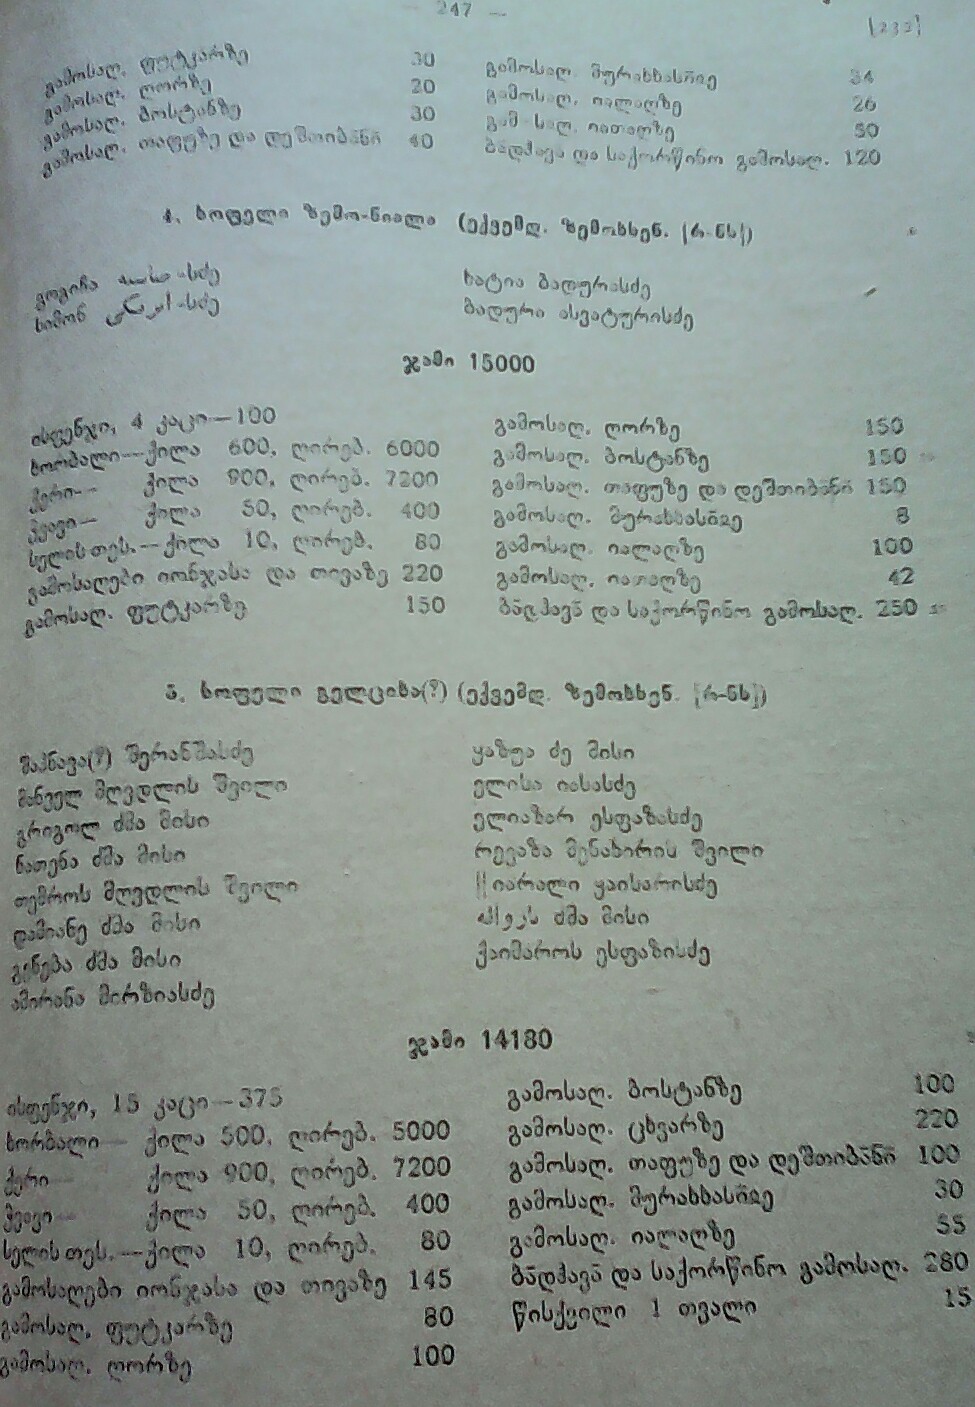 — 247 —
გამოსაღ. ფუტკარზე 30
გამოსაღ. ღორზე 20
გამოსაღ. ბოსტანზე 30
გამოსაღ. თაფუზე და დეშთიბანი 40
გამოსაღ. მურახხასიჲე 34
გამოსაღ. იალაღზე 26
გამ სალ. იათაღზე 50
ბადჰავა და საქორწინო გამოსაღ. 120
4. სოფელი ზემო-ნიალა (ექვემდ. ზემოხსენ. [რ-ნს])
გოგიჩა -სძე
სიმონ -სძე
ხატია ბადურასძე
ბადური ასვატურისძე
ჯამი 15000
ისფენჯი, 4 კაცი—100
ხორბალი—ქილა 600, ღირებ. 6000
ქერი— ქილა 900, ღირებ. 7200
ჭვავი— ქილა 50, ღირებ. 400
სელის თეს.—ქილა 10, ღირებ. 80
გამოსაღები იონჯასა და თივაზე 220
გამოსაღ. ფუტკარზე 150
გამოსაღ. ღორზე 150
გამოსაღ. ბოსტანზე 150
გამოსაღ. თაფუზე და დეშთიბანი 150
გამოსაღ. მურახხასიჲე 8
გამოსაღ. იალაღზე 100
გამოსაღ. იათაღზე 42
ბადჰავა და საქორწინო გამოსაღ. 250
5. სოფელი გელცისა(?) (ექვემდ. ზემოხსენ. [რ-ნს])
შერანშასძე
მანველ მღვდლის შვილი
გრიგოლ ძმა მისი
ნათენა ძმა მისი
თემროს მღვდლის შვილი
დამიანე ძმა მისი
გენება ძმა მისი
ამირანა მირზიასძე
ყაზუა ძე მისი
ელისა იასასძე
ელიაზარ ესფაზასძე
რევაზა მენახირის შვილი
|| იარალი ყაისარისძე
ძმა მისი
ქაიმაროს ესფაზისძე
ჯამი 14180
ისფენჯი, 15 კაცი—375
ხორბალი— ქილა 500, ღირებ. 5000
ქერი— ქილა 900, ღირებ. 7200
ჭვავი— ქილა 50, ღირებ. 400
სელის თეს.—ქილა 10, ღირებ. 80
გამოსაღები იონჯასა და თივაზე 145
გამოსაღ. ფუტკარზე 80
გამოსაღ. ღორზე 100
გამოსაღ. ბოსტანზე 100
გამოსაღ. ცხვარზე 220
გამოსაღ. თაფუზე და დეშთიბანი 100
გამოსაღ. მურახხასიჲე 30
გამოსაღ. იალაღზე 55
ბადჰავა და საქორწინო გამოსაღ. 280
წისქვილი 1 თვალი 15